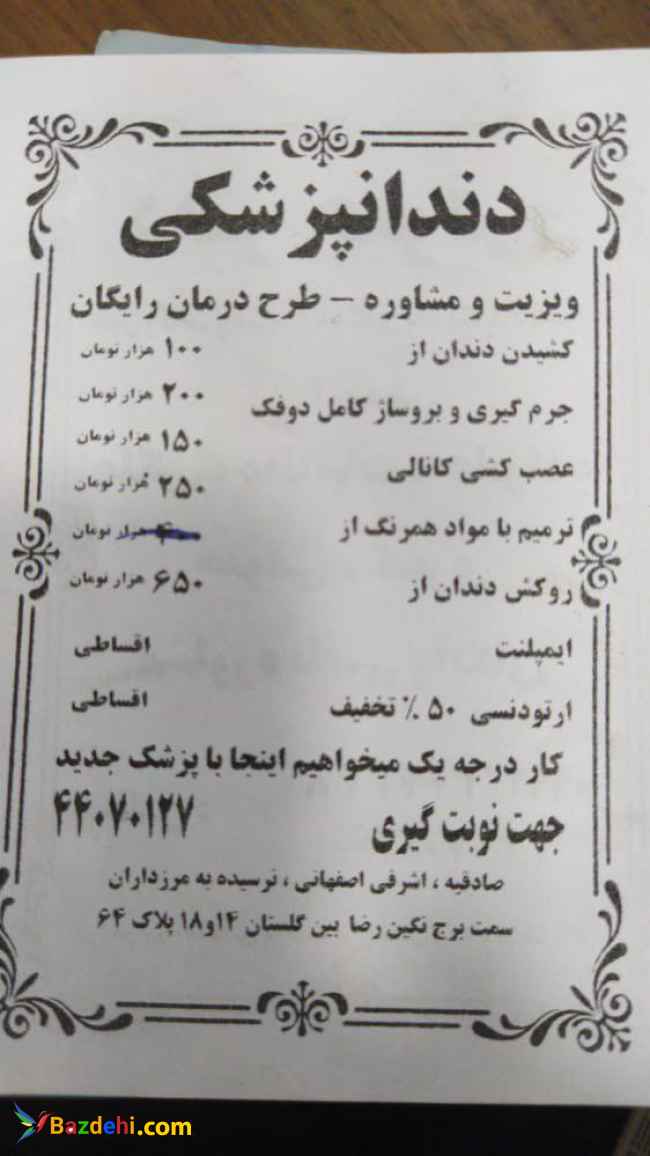 دندانپزشکی
ویزیت و مشاوره – طرح درمان رایگان
کشیدن دندان از ۱۰۰ هزار تومان
۲۰۰ هزار تومان
جرم گیری و بروساژ کامل دوفک
۱۵۰ هزار تومان
عصب کشی کانالی
۲۵۰ هزار تومان
ترمیم با مواد همرنگ از
هزار تومان
روکش دندان از ۶۵۰ هزار تومان
ایمپلنت اقساطی
ارتودنسی ۵۰ ٪ تخفیف اقساطی
کار درجه یک میخواهیم اینجا با پزشک جدید
جهت نوبت گیری ۴۴۰۷۰۱۲۷
صادقیه ، اشرفی اصفهانی ، نرسیده به مرزداران
سمت برج نگین رضا بین گلستان ۱۴و۱۸ پلاک ۶۴
Bazdehi.com